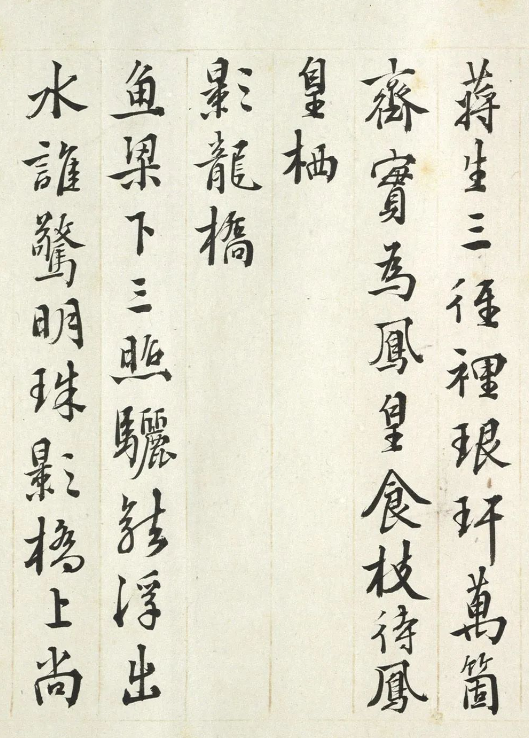 蔣生三徑裡琅玕萬箇
齊實為鳳皇食枝待鳳
皇栖
影龍橋
魚梁下三照驪能浮出
水誰驚明珠影橋上尚